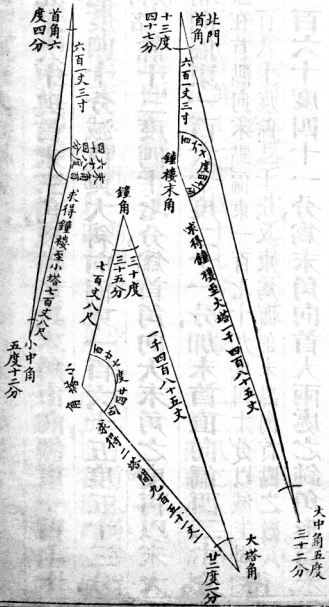 北門
首角
十三度
四十七分
六百一丈三寸
百六十度四十一分
鐘樓末角
求得鐘樓至大塔一千四百八十五丈
大中角五度
三十二分
首角六
度四分
六百一丈三寸
末角百
六十八度
四十四分
求得鐘樓至小塔七百丈八尺
小中角
五度十二分
鐘角
三十度
三十五分
七百丈八尺
一千四百八十五丈
小塔角
百廿七度廿四分
求得二塔間九百五十一丈
大塔角
廿二度一分